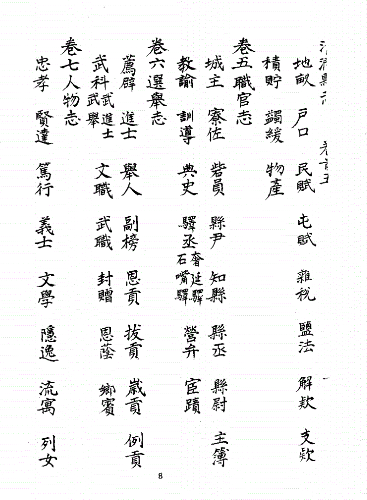 清澗縣志 卷首五
地畝 戶口 民賦 屯賦 雜稅 鹽法 解欵 支欵
積貯 蠲緩 物產
卷五職官志
城主 寮佐 砦員 縣尹 知縣 縣丞 縣尉 主簿
教諭 訓導 典史 驛丞 奢延驛 石嘴驛 營弁 宦蹟
卷六選舉志
薦辟 進士 舉人 副榜 恩貢 拔貢 歲貢 例貢
武科 武進士 武舉 文職 武職 封贈 恩蔭 鄉賓
卷七人物志
忠孝 賢達 篤行 義士 文學 隱逸 流寓 列女
8